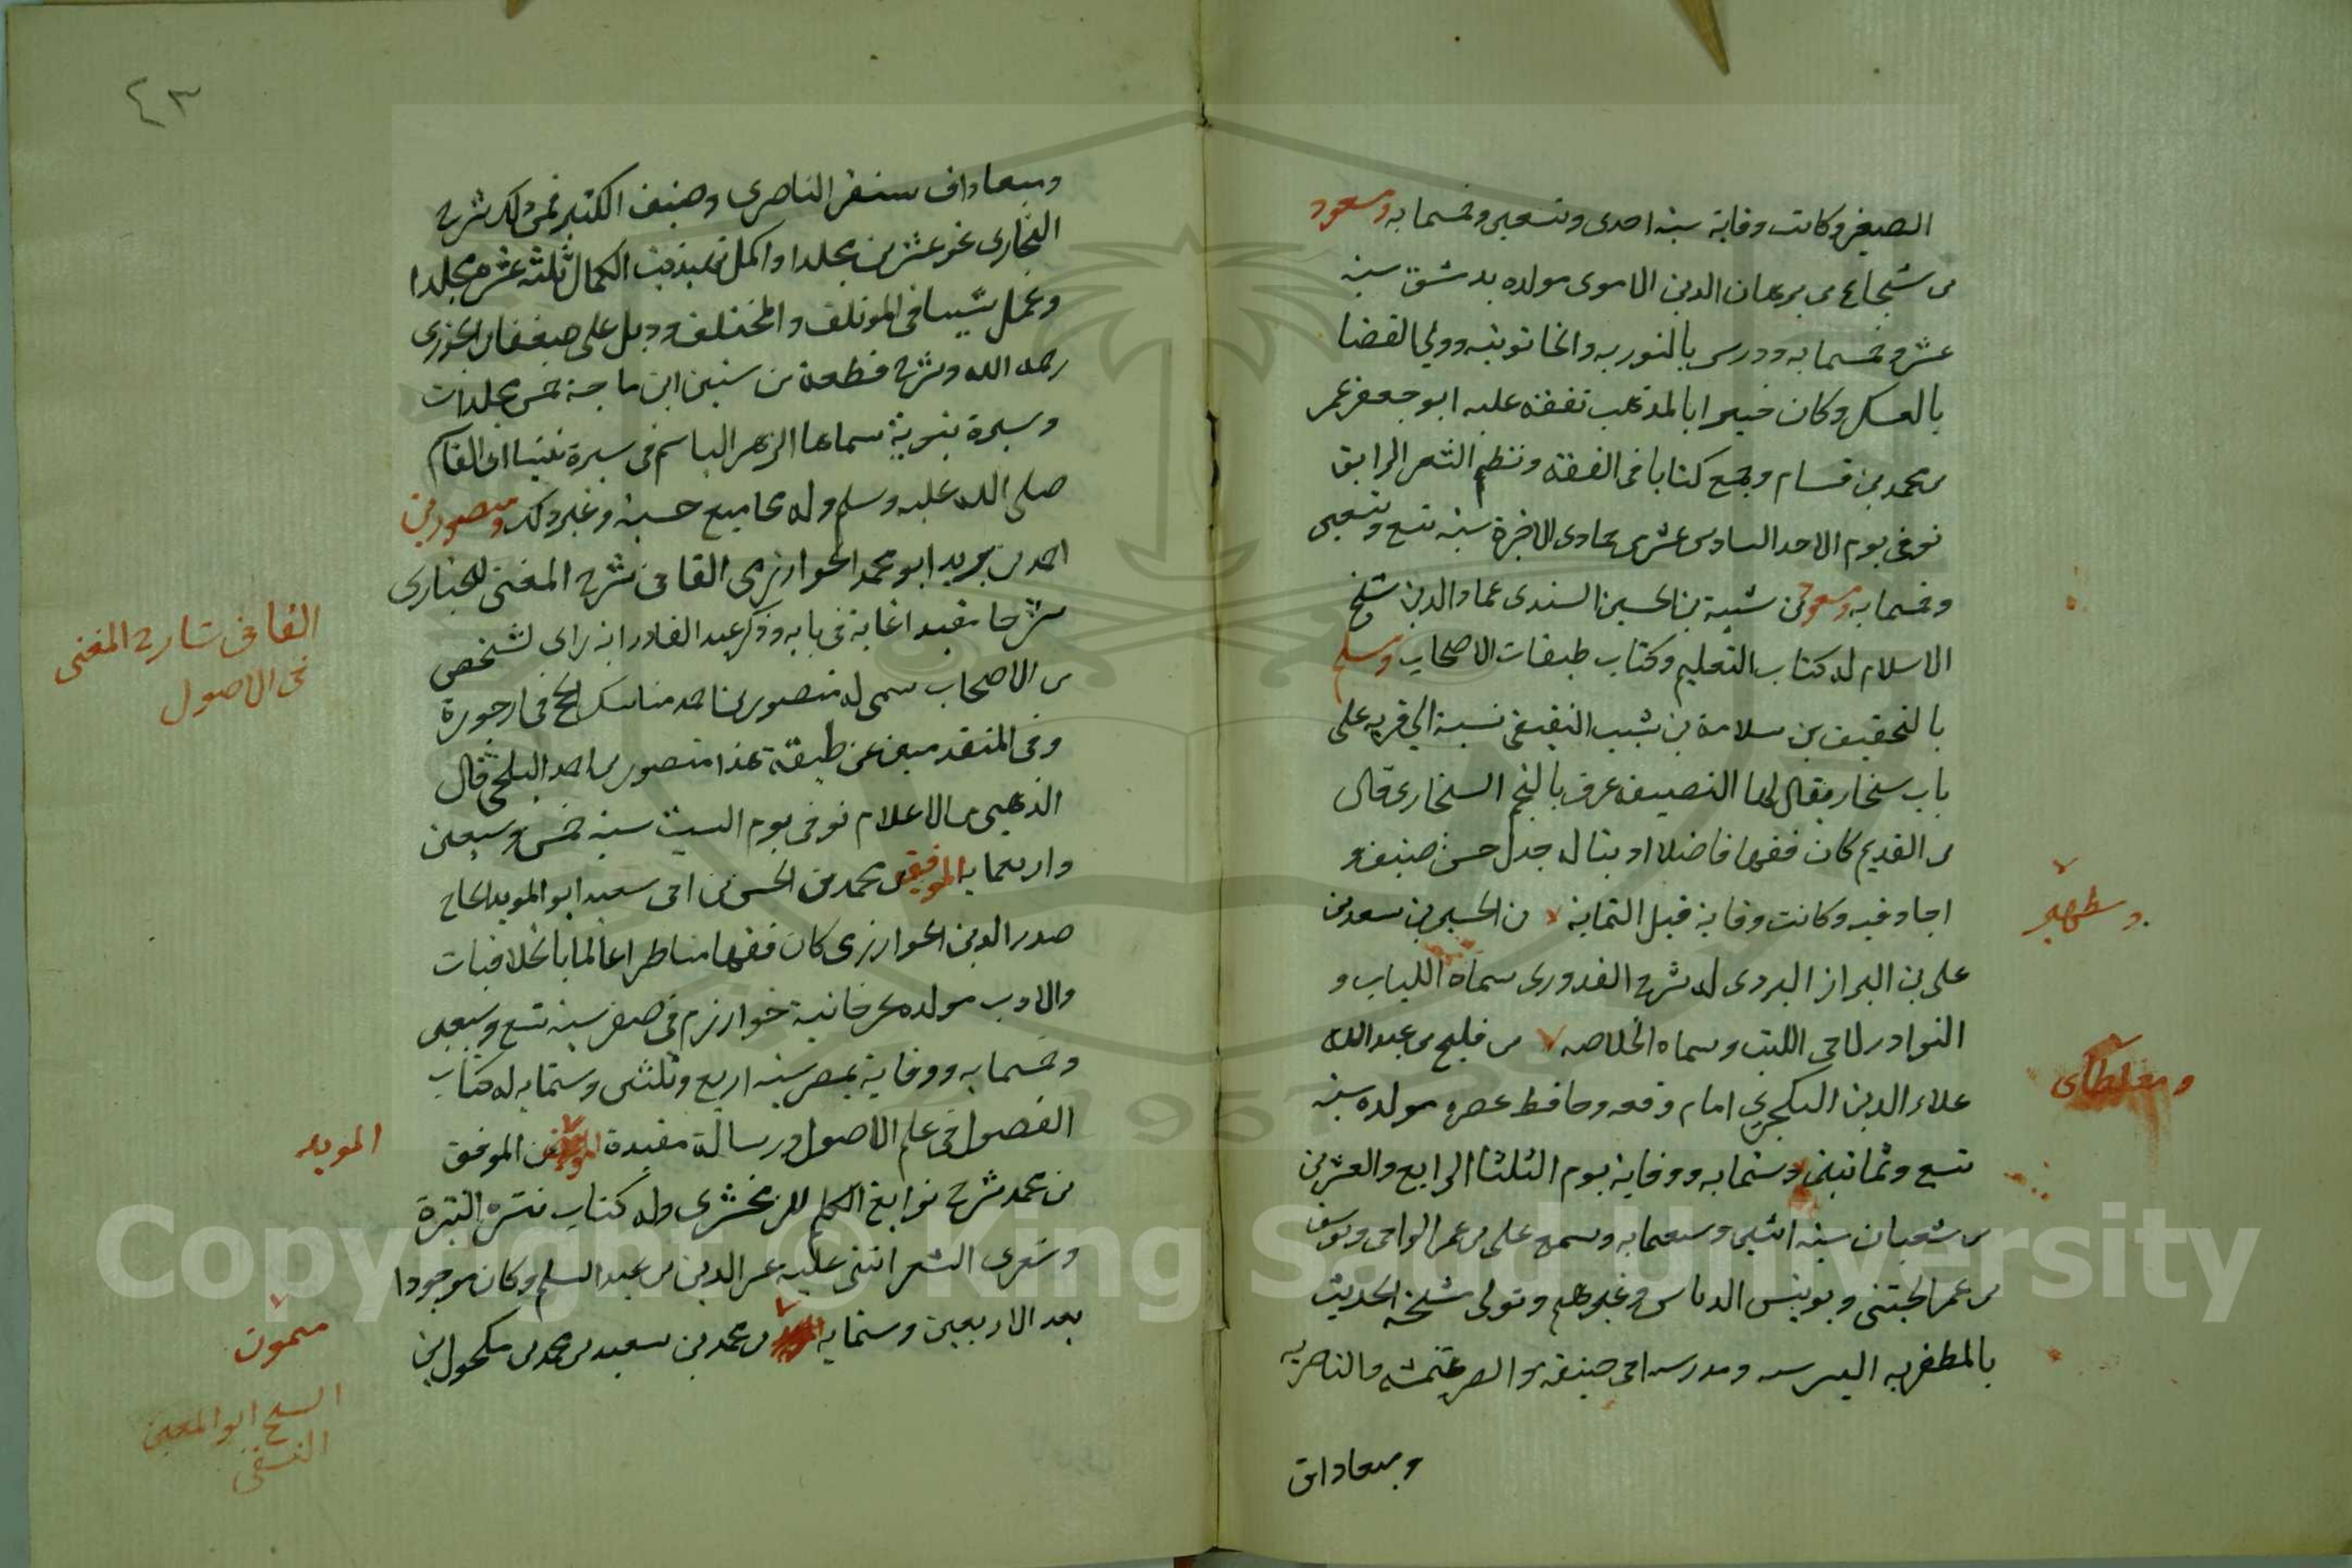 الصغير وكانت وفاته سنة احدى وتسعين وخمسمايه ومسعود
بن شجاع بن برهان الدين الاموى مولده بدمشق سنه
عشر وخمسمايه ودرس بالنوريه والخاتونيه وولي القضا
بالعسكر وكان خبيرا بالمذهب تفقه عليه ابو جعفر عمر
بن محمد بن قسام وجمع كتابا فى الفقه ونظم الشعر الرايق
توفى يوم الاحد السادس عشر جمادى الاخرة سنه تسع وتسعين
وخمسمايه ومسعود بن شيبة بن الحسين السندى عماد الدين شيخ
الاسلام له كتاب التعليم وكتاب طبقات الاصحاب ومسلم
بالتخفيف بن سلامة بن شبيب النصيفى نسبة الي قريه على
باب سنجار يقال لها النصيف عرف بالنجم السنجارى قال
بن العديم كان فقيها فاضلا ادبيا له جدل حسن صنف و
اجاد فيه وكانت وفاته قبل الثمانه بن الحسين بن سعد بن
ومطهر
على بن البراز اليزدى له شرح القدورى سماه اللباب و
النوادر لابى الليث وسماه الخلاصه بن قليج بن عبد الله
ومغلطاى
علاء الدين البكجرى امام وقته وحافظ عصره مولده سنه
تسع وثمانين وستمايه ووفاته يوم الثلثا الرابع والعشرين
من شعبان سنه اثنين وستين وسبعمايه وسمع على بن عمر الوانى ويوسف
بن عمر الختنى ويونس الدباس وغيرهم وتولى مشيخة الحديث
بالمظفريه البيبرسيه ومدرسه ابى حنيفه والصرغتمشيه والناصريه
وميعادات
٤٣
وميعادات سنقر الناصرى وصنف الكثير فمن ذلك شرح
البخارى نحو عشرين مجلدا واكمل تهذيب الكمال ثلثه عشر مجلدا
وعمل شيىا فى المؤتلف والمختلف وذيل على ضعفاء بن الجوزى
رحمه الله وشرح قطعة من سنن ابن ماجة خمس مجلدات
وسيرة نبوية سماها الزهر الباسم فى سيرة نبينا ابى القاسم
صلى الله عليه وسلم وله مجاميع حسنه وغير ذلك ومنصور بن
احمد بن يزيد ابو محمد الخوارزمى القاانى شرح المغنى للخبازى
شرحا مفيدا غاية فى بابه وذكر عبد القادر انه راى لشخص
من الاصحاب سمى له منصور بن احمد مناسك الحج فى ارجوزة
القاانى شارح المغنى
فى الاصول
وفى المتقدمين عن طبقة هذا منصور بن احمد البلخى قال
الذهبى بن الاعلام توفى يوم السبت سنه خمس وسبعين
واربعمايه الموفق بن محمد بن الحسن بن ابى سعيد ابو المويد الحاج
صدر الدين الخوارزمى كان فقيها مناظرا عالما بالخلافيات
والادب مولده بجرجانية خوارزم فى صفر سنه تسع وسبعين
وخمسمايه ووفاته بمصر سنه اربع وثلثين وستمايه له كتاب
الفصول فى علم الاصول ورسالة مفيدة بن الموفق
المويد
بن محمد شرح نوابغ الكلم للزمخشرى وله كتاب نثره النثرة
وشعرى الشعر اثنى عليه عز الدين بن عبد السلم وكان موجودا
بعد الاربعين وستمايه بن محمد بن سعيد بن محمد بن مكحول ابن
ميمون
الشيخ ابو المعين
النسفى
Copyright © King Saud University
1957